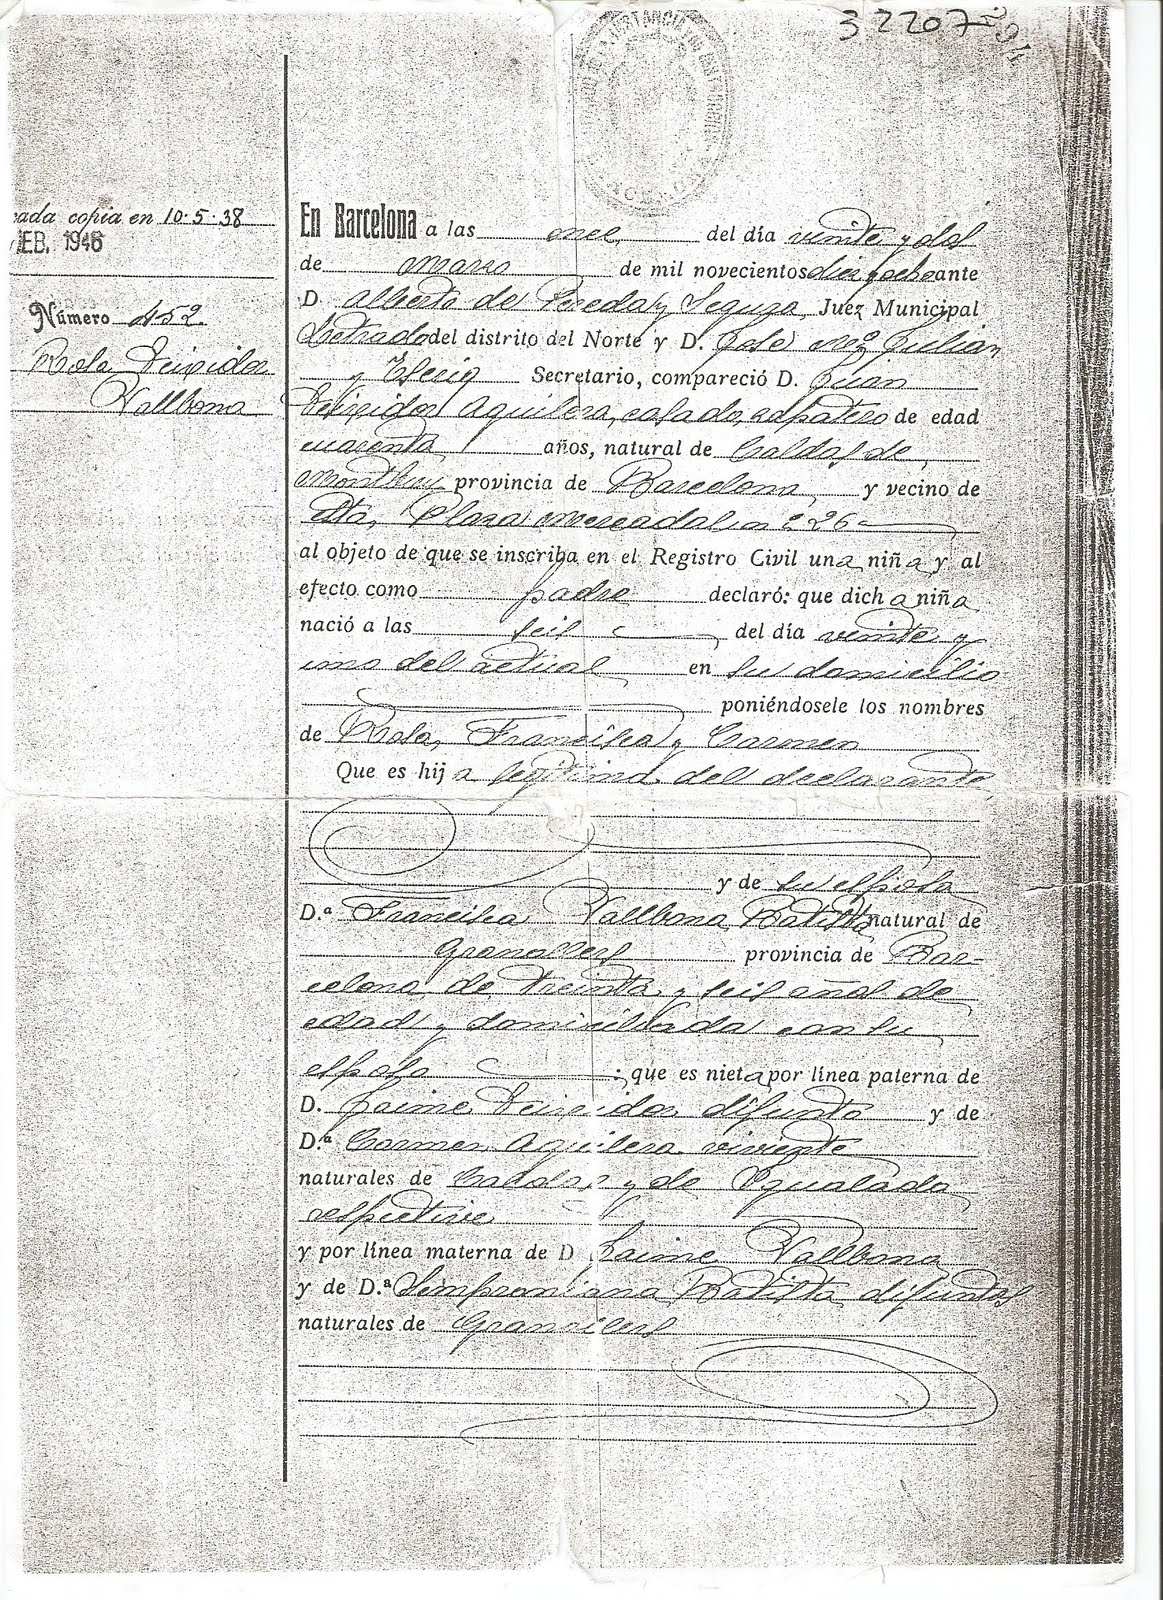 32207
294
cada copia en 10-5-38
EB. 1946
Número 452.
Rosa Deividor
Vallbona
En Barcelona a las once del día veinte y dos
de marzo de mil novecientos diez y ocho ante
D. Alberto de Pereda y Segura, Juez Municipal
Letrado del distrito del Norte y D. José Julián
y Secretario, compareció D. Juan
Aguilera, casado, zapatero de edad
cuarenta años, natural de Caldas de
Montbuy provincia de Barcelona y vecino de
esta, Plaza Mercadal nº 26
al objeto de que se inscriba en el Registro Civil una niña y al
efecto como padre declaró: que dicha niña
nació a las seis del día veinte y
uno del actual en su domicilio
poniéndosele los nombres
de Rosa, Francisca y Carmen
Que es hija legítima del declarante
y de su esposa
D.ª Francisca Vallbona Batista natural de
Granollers provincia de Bar-
celona, de treinta y seis años de
edad y domiciliada con su
esposo; que es nieta por línea paterna de
D. Jaime difunto y de
D.ª Carmen Aguilera viviente
naturales de Caldas y de Igualada
respective
y por línea materna de D Jaime Vallbona
y de D.ª Semproniana Batista difuntos
naturales de Granollers